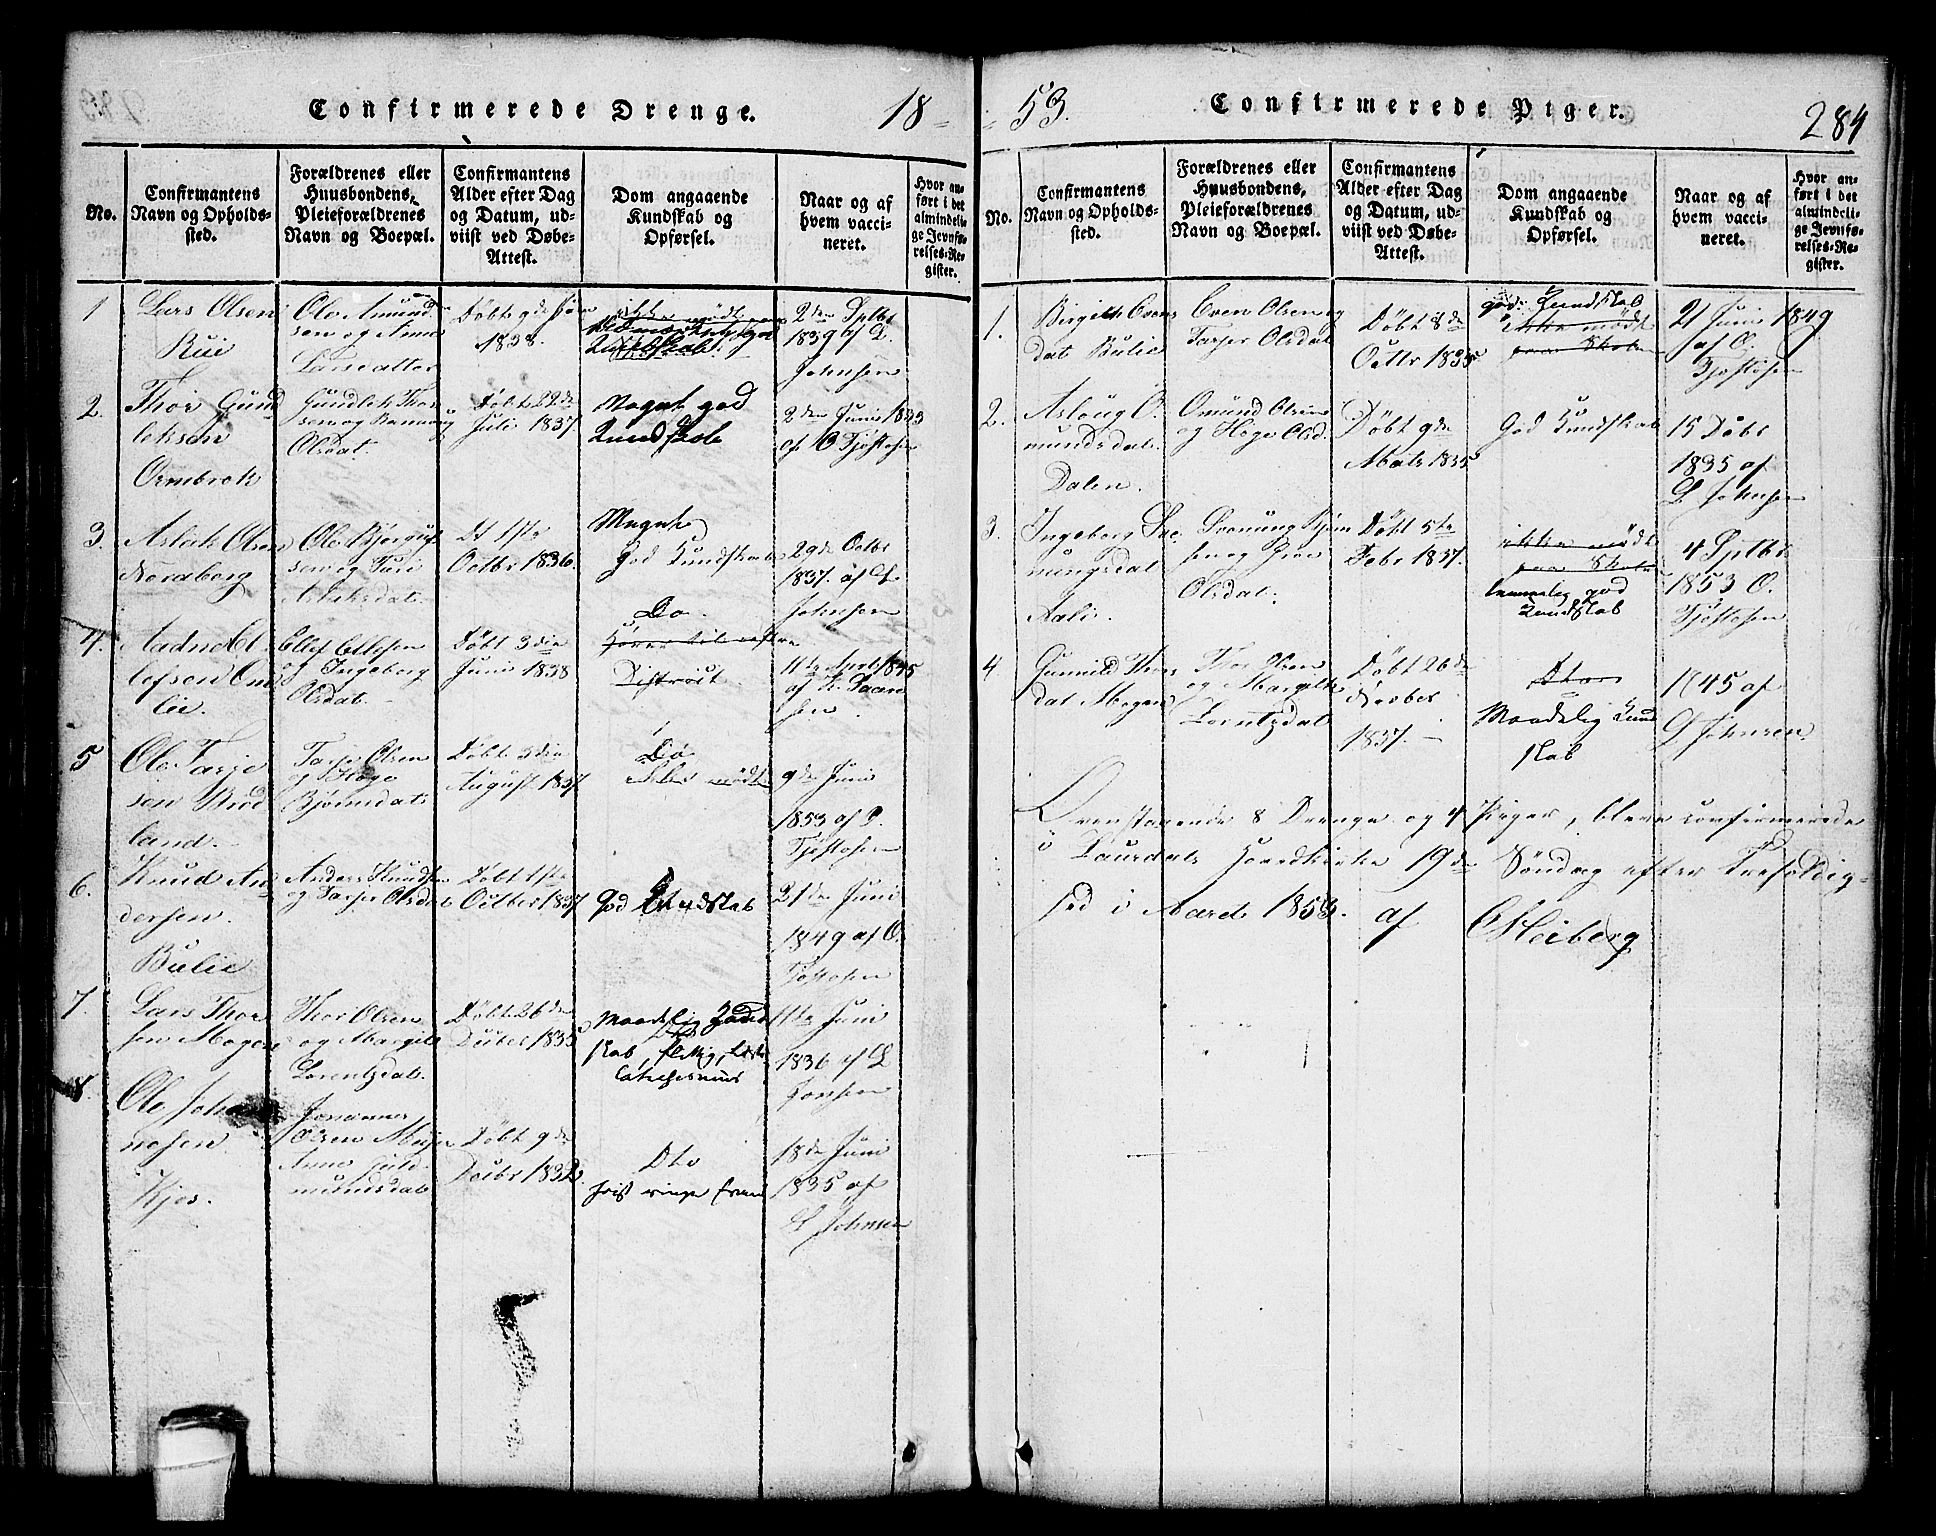 Confirmerede Drenge. 18
No.
Confirmantens Navn og Opholdssted.
Forældrenes eller Huusbondens, Pleieforældrenes Navn og Boepæl.
Confirmantens Alder efter Dag og Datum, udviist ved Døbe-Attest.
Dom angaaende Kundskab og Opførsel.
Naar og af hvem vaccineret.
Hvor anført i det almindelige Jevnførelses-Register.
1
Lars Olsen
Rui
Ole Amund
sen og Anne
Larsdatter
Døbt 9de
1838.
ikke mødt
Kundskab.
2den Sptbr
1839 af L.
Johnsen
2.
Thor Gund
leksen
Ormbrek
Gundlek Thor
sen og Rannoug
Olsdat.
Døbt 22de
Juli 1837
Meget god
Kundskab
2den Juni 1833
af O Tjøstosen
3.
Aslak Olsen
Nordborg
Ole Bjørgufs
sen og Turi
Aslaksdat.
Dt 1ste
Octbr 1836.
Meget
God Kundskab
29de Octbr
1837. af L.
Johnsen
4.
Aadne El
lefsen Om
lie.
Ellef Ellefsen
og Ingeborg
Olsdat.
Døbt 3die
Juni 1838
Do
Hører til
District
11te 1845
af K. Saan
sen
5
Ole Tarje
sen Rud
land.
Tarje Olsen
og Høge
Bjørnsdat
Døbt 3die
August 1837
Do
ikke mødt
9de Juni
1853 af O.
Tjøstosen
6.
Knud An
dersen.
Bulie
Anders Knudsen
og Tarjer Olsdat
Døbt 1ste
Octber 1837
God Kundskab
21de Juni
1849 af O.
Tjøstosen
7.
Lars Thor
sen Mogen
Thor Olsen
og Margit
Lorentzdat.
Døbt 26de
1835
Maadelig Kund
skab, flittig,
Catechesmus
11te Juni
1836 af L
Jonsen
8
Ole Joha
nesen.
Kjos.
Johannes
Olsen
Anne
mundsdat
Døbt 9de
1832.
Dto
18de Juni
1835 af
L Johnsen
53. Confirmerede Piger. 284
No.
Confirmantens Navn og Opholdssted.
Forældrenes eller Huusbondens, Pleieforældrenes Navn og Boepæl.
Confirmantens Alder efter Dag og Datum, udviist ved Døbe-Attest.
Dom angaaende Kundskab og Opførsel.
Naar og af hvem vaccineret.
Hvor anført i det almindelige Jevnførelses-Register.
1.
Birgitt Evens
dat Bulie
Even Olsen og
Tarjer Olsdat
Døbt 8de
Octbr 1835
god Kundskab
ikke mødt
paa Skole
21 Juni 1849
af O.
Tjøstosen
2.
Aslaug O.
mundsdat.
Dalen.
Omund Olsen
og Høge Olsd.
Døbt 9de
Marts 1835
God Kundskab
15 Døbr
1835 af
L Johnsen
3.
Ingeborg Sve
nungsdat
Aalie.
Svenung Bjørn
sen og Groe
Olsdat.
Døbt 5te
Febr 1837.
ikke mødt
paa Skole
temmelig god
Kundskab
4 Sptbr
1853 O.
Tjøstosen
4
Gunnild Thors
dat Mogen
Thor Olsen
og Margitte
Lorentzdat
Døbt 26de
1837.
Dto
Maadelig Kund
skab
1845 af
L Johnsen
Ovenstaaende 8 Drenge og 4 Piger, bleve confirmerede
i Laurdals Hovedkirke 19de Søndag efter Trefoldig-
hed i Aaret 1853. af O Heiberg